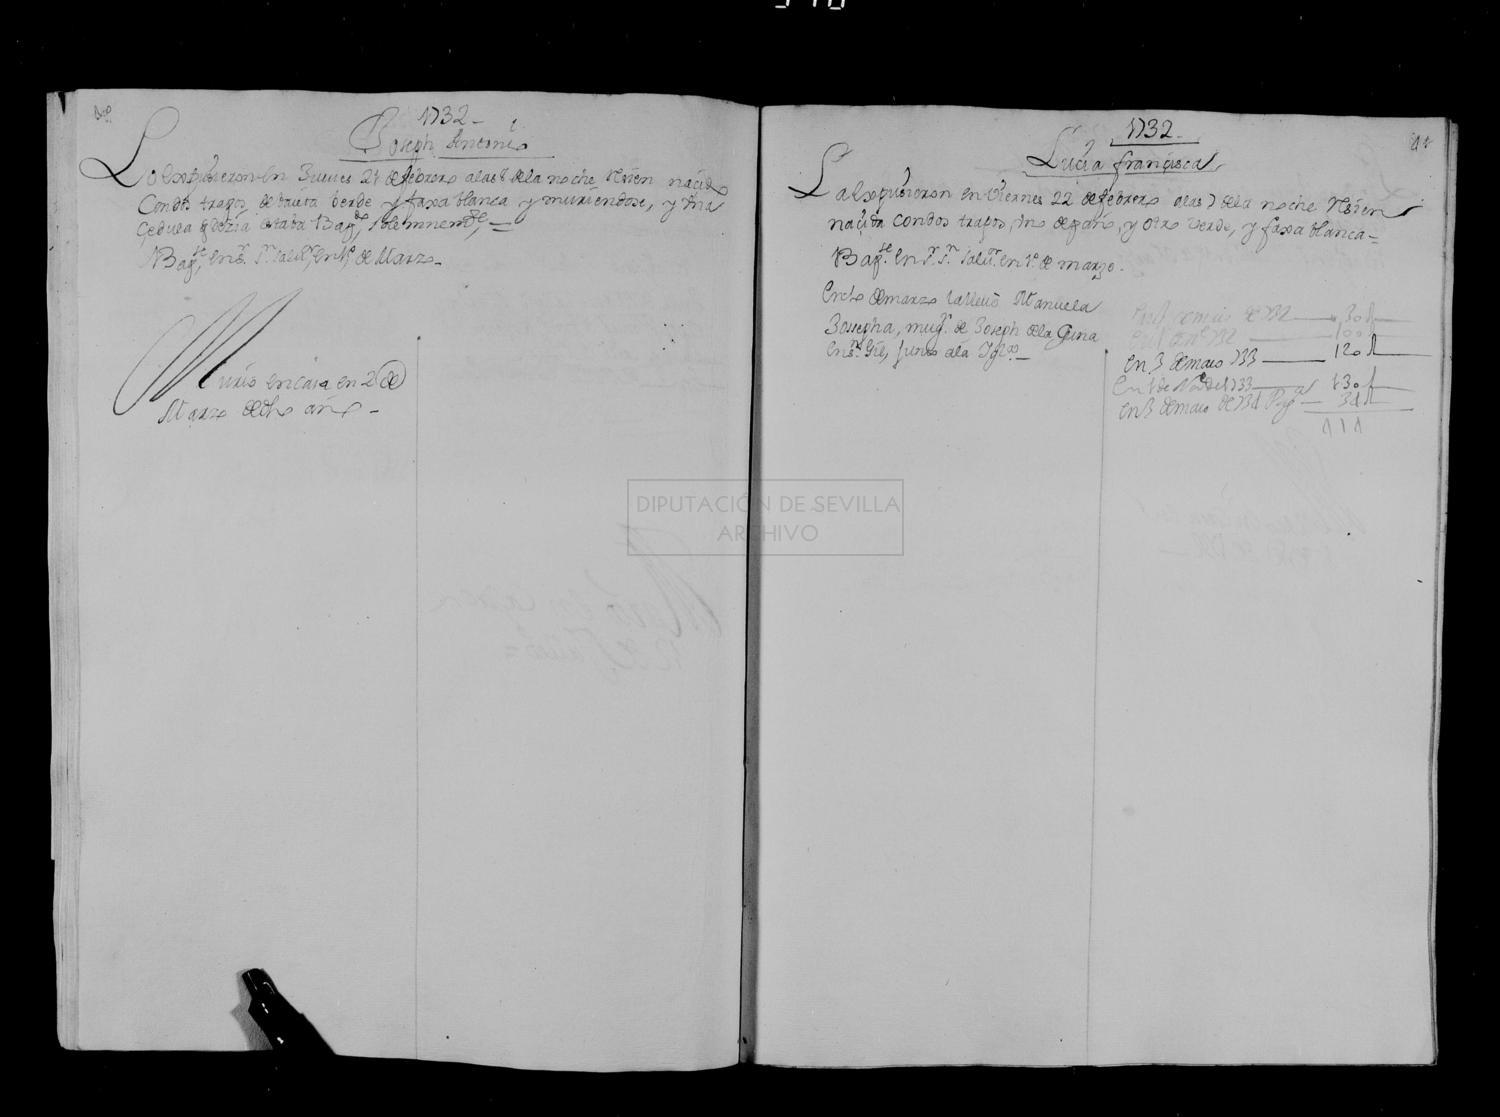 1732
Joseph Antonio
Lo expusieron en Jueves 21 de febrero a las 8 de la noche Resien nacido
Con dos trapos de baieta berde y faxa blanca y muriendose, y Una
Çedula q dezia estaba Bap.do solemnem.te
Bap.se en s.r s.n Salv.r en 1.º de Marzo
Murio en casa en 2 de
Marzo de dho año
1732
Luçia françisca
La expusieron en Viernes 22 de febrero a las 7 de la noche Resien
naçida Con dos trapos, uno de paño, y otro verde, y faxa blanca
Bap.se en s.r s.n Salv.r en 1.º de marzo
En de marzo la llevo Manuela
Josepha, mug.r de Joseph de la
junto a la Igl.a
30
100
en 3 de maio 733 120
en 1 de Nov.e de 1733 130
en 3 de maio de 734 34
414
DIPUTACIÓN DE SEVILLA
ARCHIVO